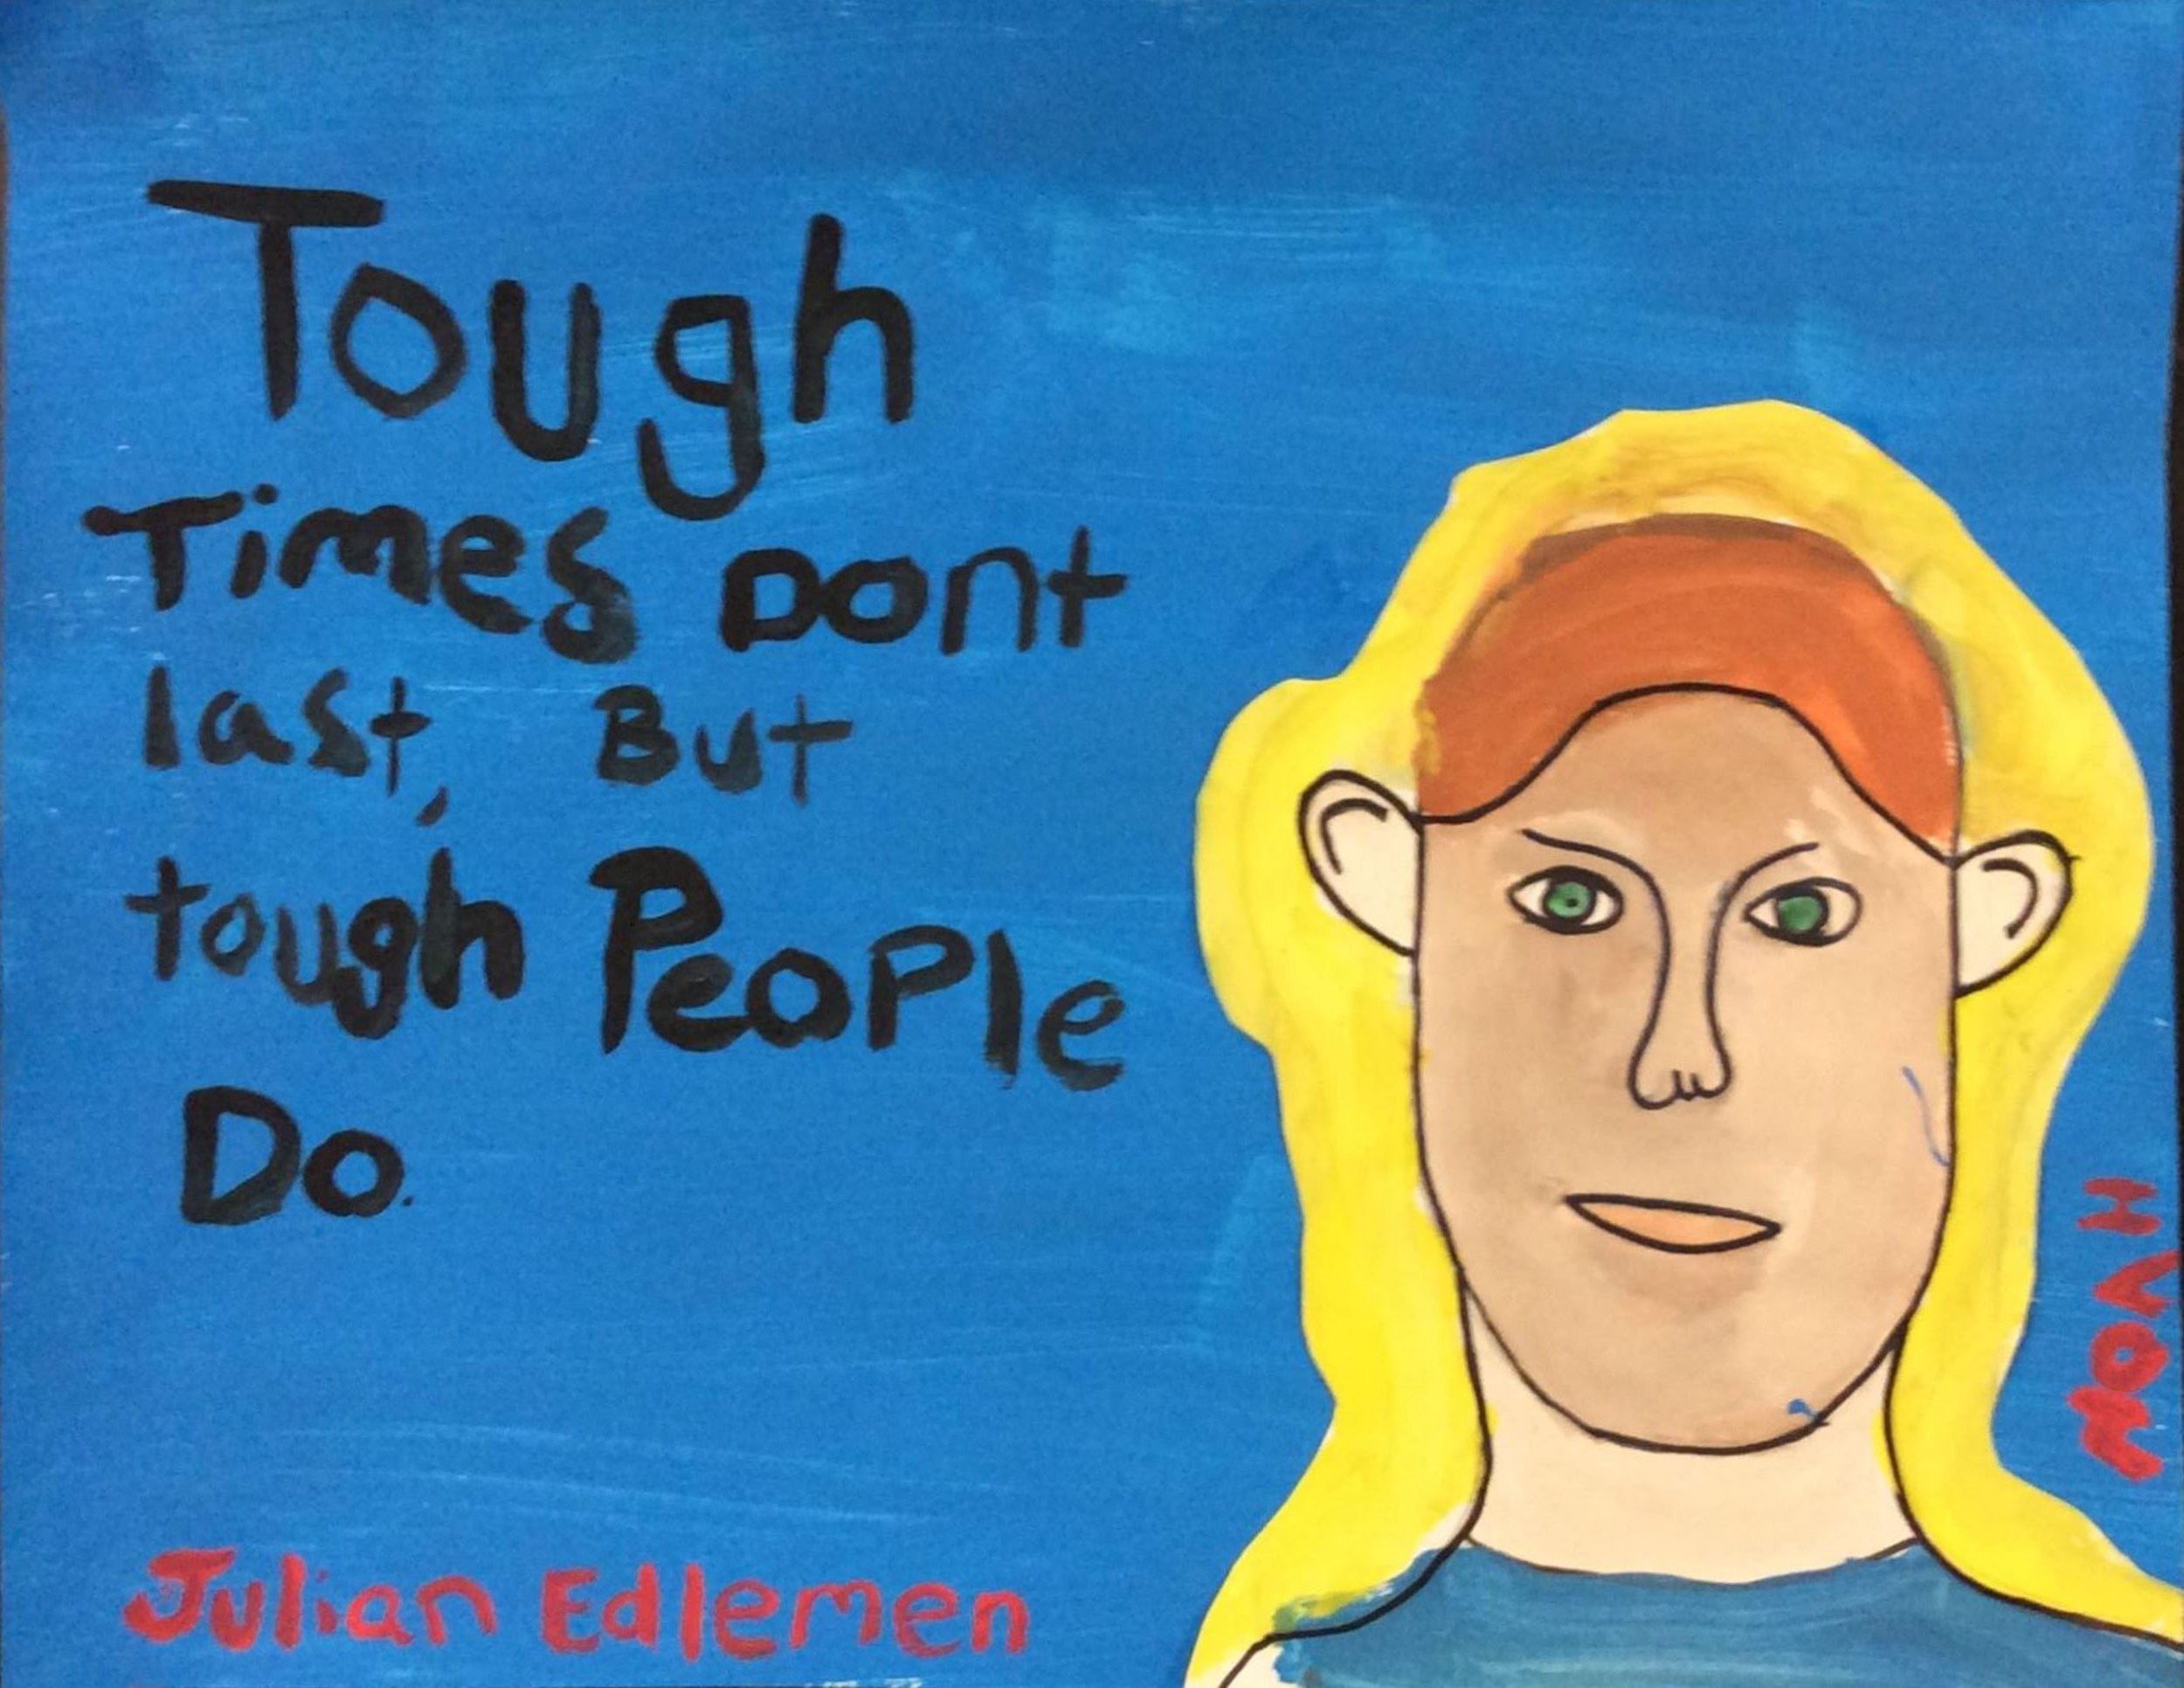 Tough
Times Dont
last, But
tough People
Do.
Julian Edlemen
NOAH